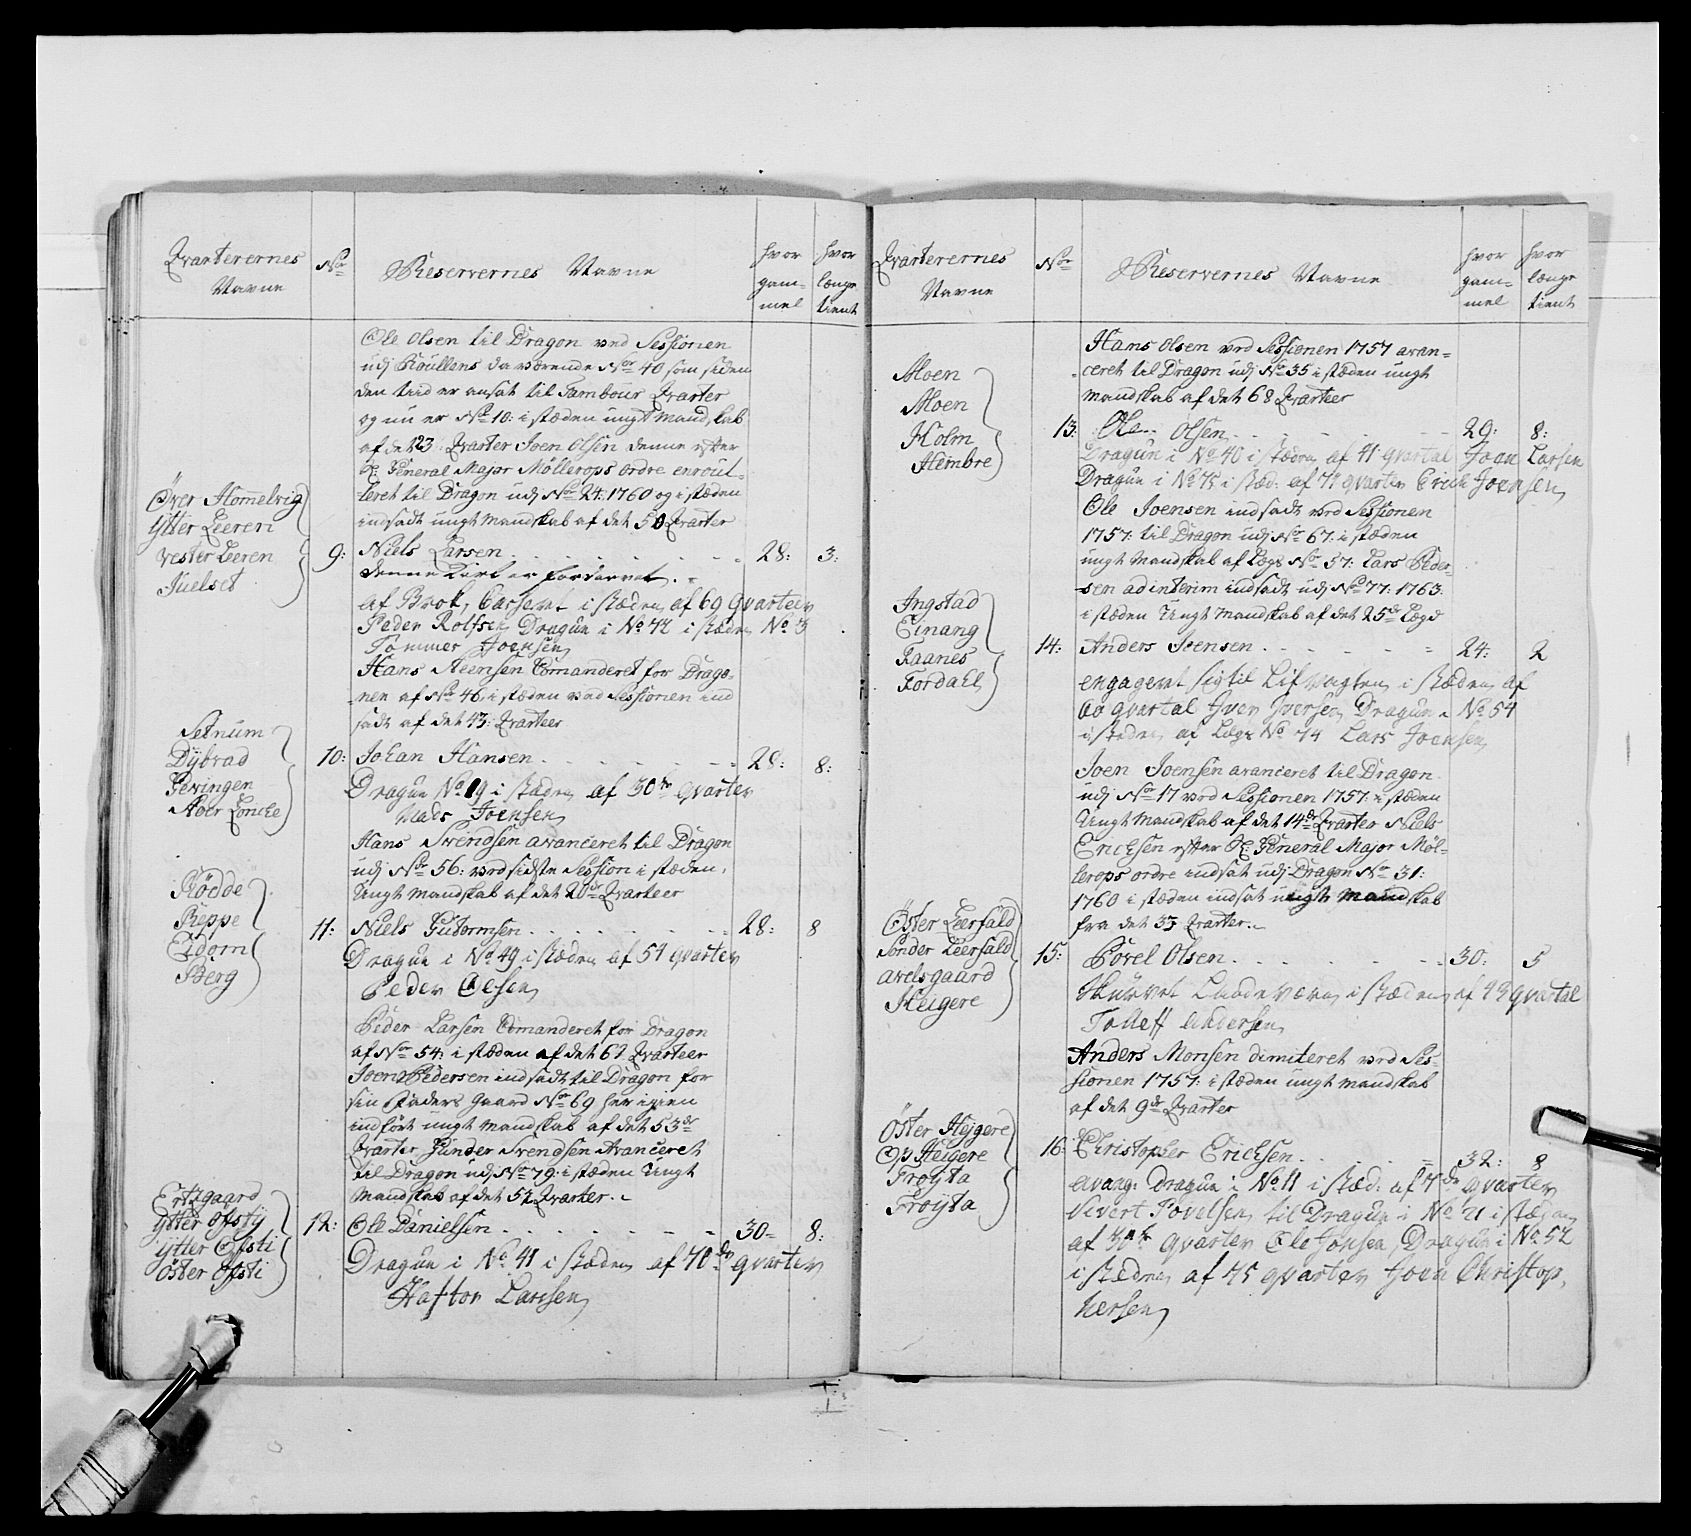 Qvarterernes
Navne
No
Reservernes Navne
hvor
gam-
mel
hvor
længe
tient
Ole Olsen til Dragon ved Sessionen
udj Roullens da værende No 40 som siden
den tiid er ansat til Tambour Qvarter
og nu er No 10: i stæden ungt Mandskab
af det 23 Qvarter Joen Olsen denne efter
H: General Major Møllerops ordre enroul-
leret til Dragon udj No 24: 1760 og i stæden
indsadt ungt Mandskab af det 50 Qvarter
Øver Homelvig
Ytter Leeren
Vester Leeren
Juelset
9: Niels Larsen 28: 3:
denne Karl er fordærvet
af Brok, Casseret i stæden af 69 Qvarteer
Peder Rolfsen Dragun i No 72 i stæden No 3
Tommer Joensen
Hans Steensen Comanderet for Drago-
nen af No 46: i stæden ved Sessionen ind
sadt af det 43: Qvarteer
Setnum
Dybvad
Gevingen
Aver Loncke
10: Johan Hansen 28: 8:
Dragun No 19 i stæden af 30te qvarter
Mads Joensen
Hans Svendsen avanceret til Dragon
udj No 56: ved sidste Session i stæden
Ungt Mandskab af det 20de Qvarteer
Rødde
Reppe
Eidom
Berg
11: Niels Gudormsen 28: 8
Dragun i No 49 i stæden af 54 qvarter
Peder Olesen
Peder Larsen Comanderet for Dragon
af No 54: i stæden af det 62 Qvarteer
Joen Pedersen indsadt til Dragon for
sin Faders Gaard No 69 her igien
indført ungt Mandskab af det 53de
Qvarter, Gunder Svendsen Avanceret
til Dragon udj No 79: i stæden Ungt
Mandskab af det 52 Qvarter.
Ertzgaard
Ytter Ofsty
Ytter Ofsti
Øster Ofsti
12: Ole Danielsen 30 8:
Dragun i No 41 i stæden af 70de qvarter
Haftor Larssen
Qvarterernes
Navne
No
Reservernes Navne
hvor
gam-
mel
hvor
længe
tient
Hans Olsen ved Sessionen 1757 avan-
ceret til Dragon udj No 35 i stæden ungt
Mandskab af det 68 Qvarteer
Moen
Moen
Holm
Hembre
13: Ole Olsen 29: 8:
Dragun i No 40 i stæden af 41 qvartal Joen Larsen
Dragun i No 75 i stæd: af 71 qvarter Erich Joensen
Ole Joensen indsadt ved Sessionen
1757: til Dragon udj No 67: i stæden
ungt Mandskab af Lægd No 57: Lars Peder-
sen ad interim indsadt udj No 77: 1763:
i stæden Ungt Mandskab af det 25de Lægd
Ingstad
Einang
Raanes
Fordahl
14: Anders Ivensen 24: 2
engageret sig til Lifvagten i stæden af
60 qvartal Iver Iversen Dragun i No 54
i stæden af Lægd No 74 Lars Joensen
Joen Joensen avanceret til Dragon
udj No 17 ved Sessionen 1757: i stæden
Ungt Mandskab af det 14de Qvarter Niels
Ericksen efter H: General Major Møl-
lerops ordre indsat udj Dragon No 31:
1760 i stæden indsat ungt Mandskab
fra det 33 Qvarter.
Øster Leerfald
Sønder Leerfald
Axelsgaard
Heigere
15: Povel Olsen 30: 5
Hurvet Landeværn i stæden af 43 qvartal
Tolleff Andersen
Anders Monsen dimiteret ved Ses-
sionen 1757: i stæden ungt Mandskab
af det 9de Qvarter
Øster Hejgere
Op Heigere
Frøyta
Frøyta
16: Christopher Ericksen 32: 8
avang: Dragun i No 11 i stæd: af 7de qvarter
Sivert Povelsen til Dragun i No 21 i stæden
qvarter Ole Jonsen, Dragun i No 52
i stæden af 75 qvarter Joen Christop,
hersen